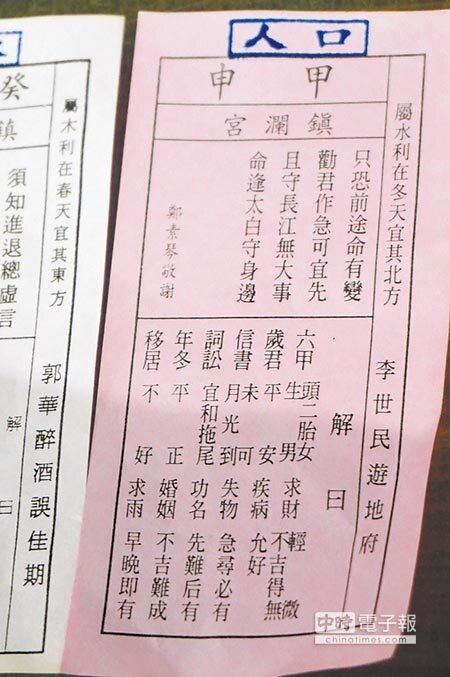 人口
甲申
鎮瀾宮
屬水利在冬天宜其北方
李世民遊地府
只恐前途命有變
勸君作急可宜先
且守長江無大事
命逢太白守身邊
鄭素琴敬謝
解曰
六甲 頭二胎女 生男
歲君 平安
信書 月光到 未可
詞訟 宜和拖尾
年冬 平正
移居 不好
求財 輕微 不吉得無
疾病 允好
失物 急尋必有
功名 先難后有
婚姻 不吉難成
求雨 早晚即有
癸
鎮
屬木利在春天宜其東方
郭華醉酒誤佳期
須知進退總虛言
解曰
中時電子報
chinatimes.com